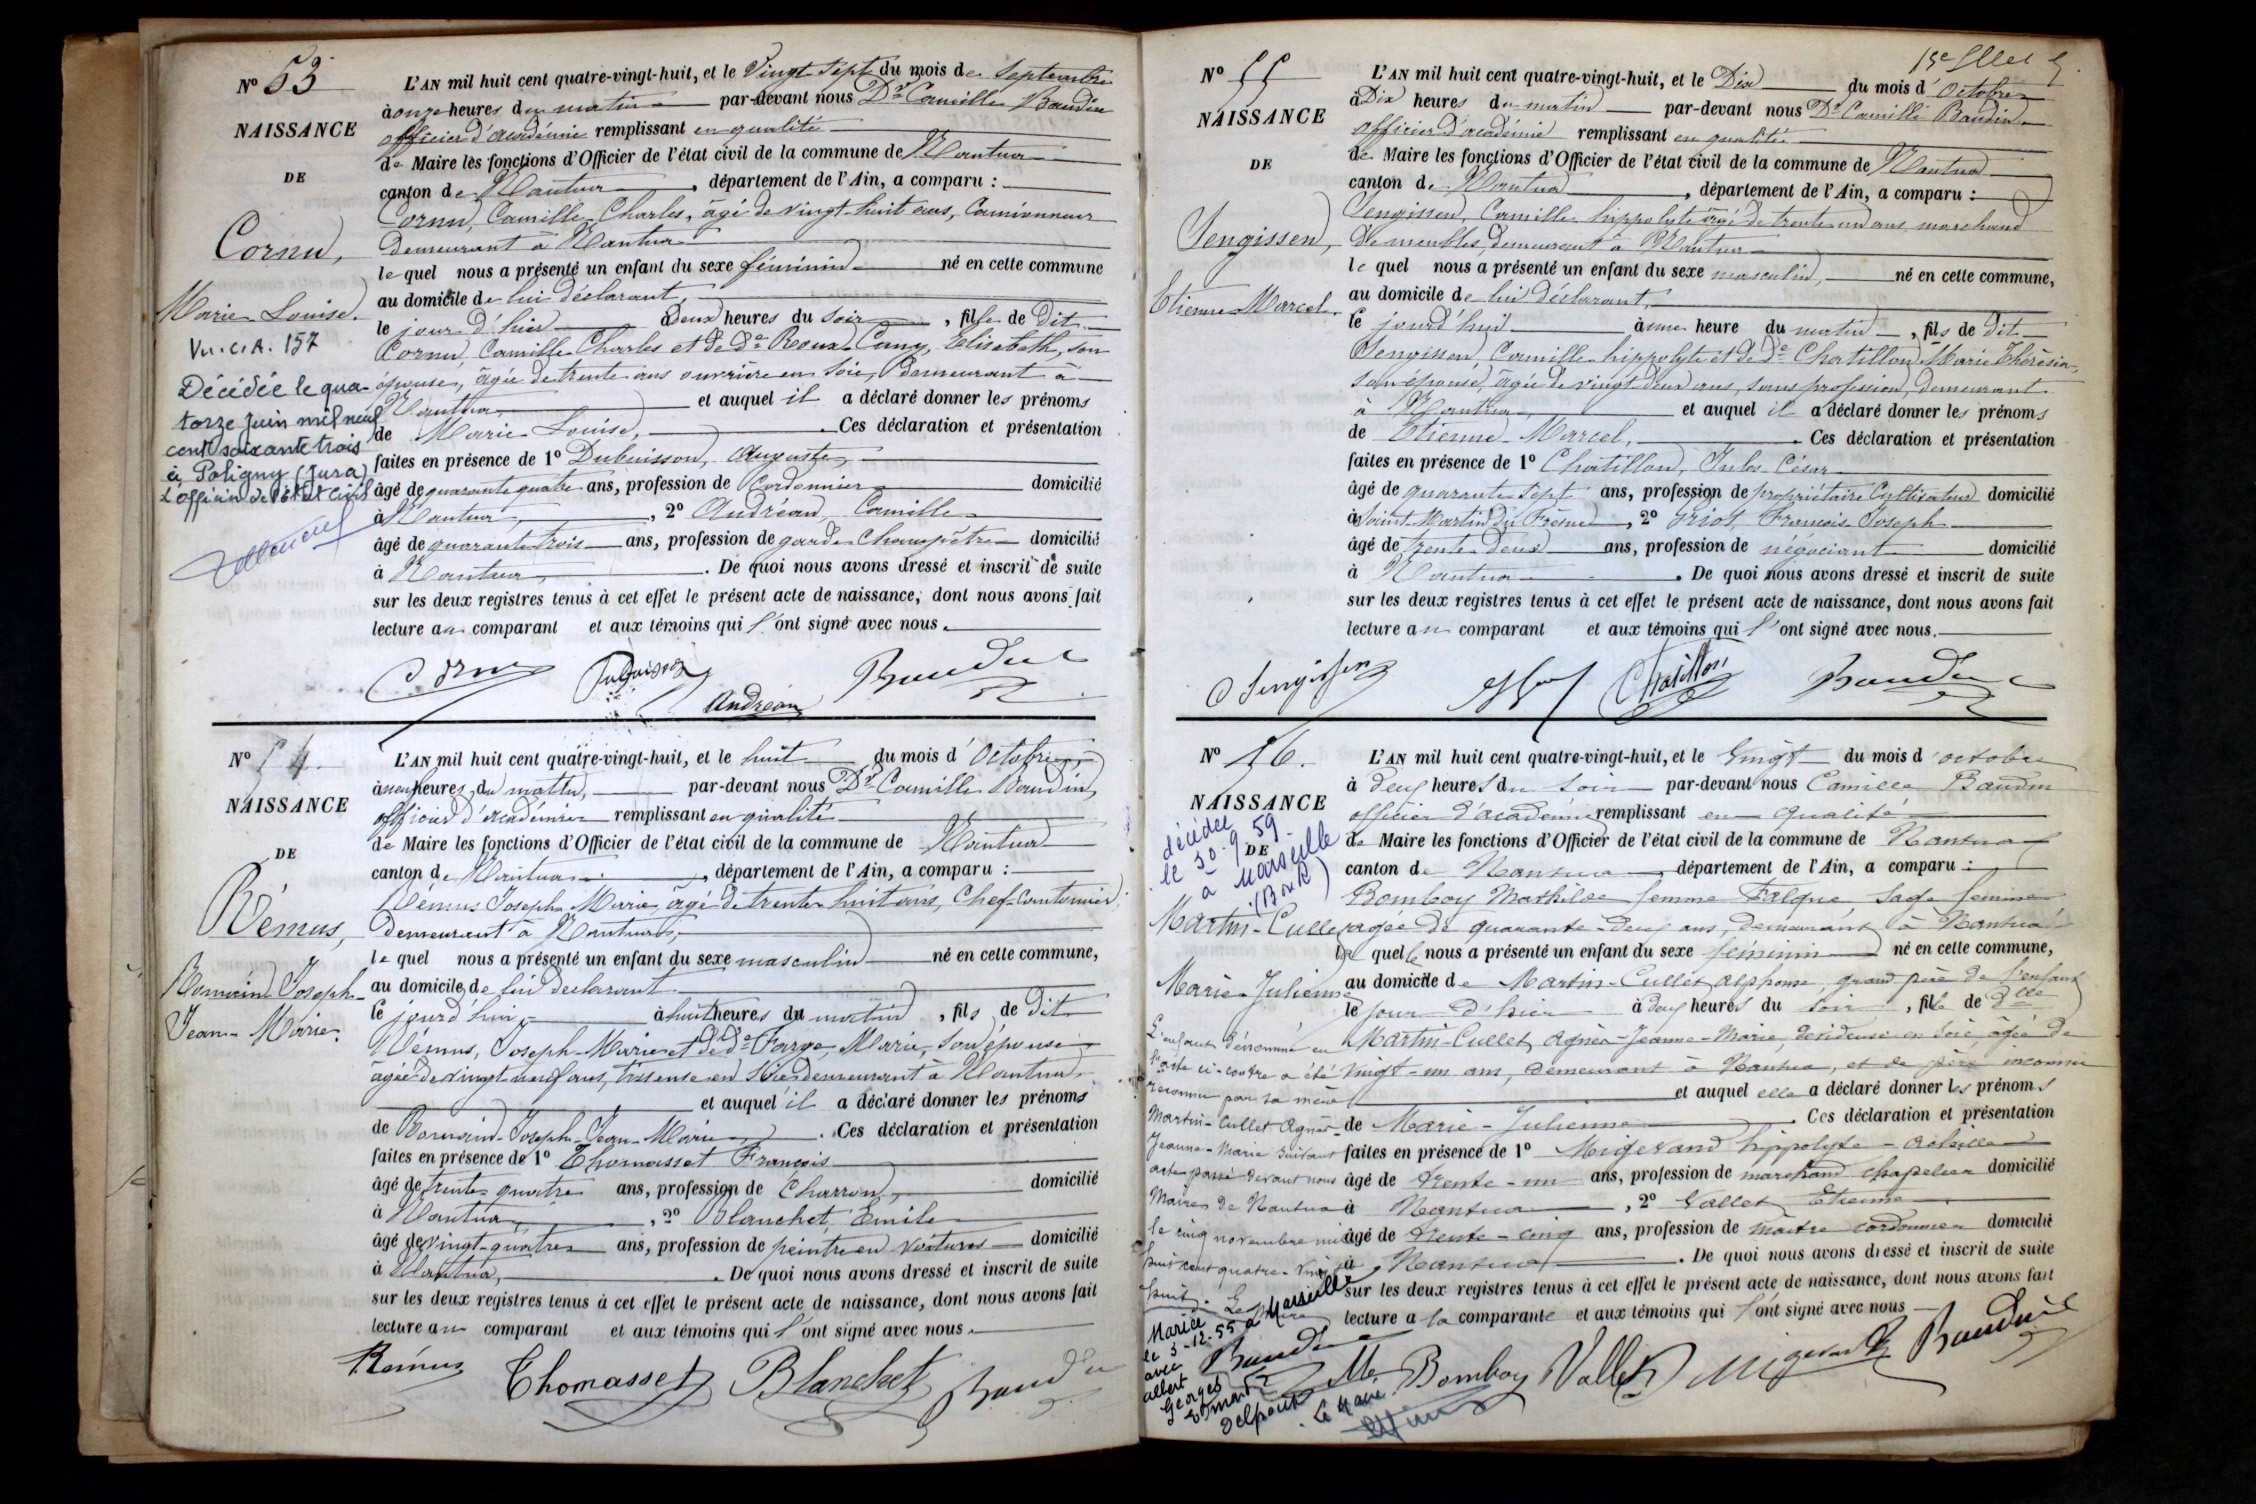 N° 53
NAISSANCE
DE
Cornu,
Marie Louise.
Vu. C.A. 157
Décédée le qua-
torze Juin mil neuf
cent soixante trois
à Poligny (Jura)
L'officier de l'état civil
L'AN mil huit cent quatre-vingt-huit, et le Vingt Sept du mois de Septembre
à onze heures du matin par-devant nous Dr Camille Baudin
officier d'académie remplissant en qualité
de Maire les fonctions d'Officier de l'état civil de la commune de Nantua
canton de Nantua, département de l'Ain, a comparu :
Cornu, Camille Charles, âgé de vingt huit ans, Camionneur
demeurant à Nantua
le quel nous a présenté un enfant du sexe féminin né en cette commune
au domicile de lui déclarant,
le jour d'hier à deux heures du soir, fille de dit
Cornu, Camille Charles et de de Roux Cany, Elisabeth, son
épouse, âgée de trente ans ouvrière en soie, demeurant à
Nantua, et auquel il a déclaré donner les prénoms
de Marie Louise, . Ces déclaration et présentation
faites en présence de 1° Dubuisson, Auguste,
âgé de quarante quatre ans, profession de Cordonnier domicilié
à Nantua, , 2° Andréan, Camille
âgé de quarante trois ans, profession de garde Champêtre domicilié
à Nantua, . De quoi nous avons dressé et inscrit de suite
sur les deux registres tenus à cet effet le présent acte de naissance, dont nous avons fait
lecture au comparant et aux témoins qui l'ont signé avec nous.
Cornu Dubuisson Andréan Baudin
N° 54
NAISSANCE
DE
Rémus,
Romain Joseph-
Jean-Marie.
L'AN mil huit cent quatre-vingt-huit, et le huit du mois d'Octobre
à neuf heures du matin, par-devant nous Dr Camille Baudin,
officier d'académie remplissant en qualité
de Maire les fonctions d'Officier de l'état civil de la commune de Nantua
canton de Nantua, département de l'Ain, a comparu :
Rémus Joseph Marie, âgé de trente huit ans, Chef-Cantonnier,
demeurant à Nantua,
le quel nous a présenté un enfant du sexe masculin né en cette commune,
au domicile de lui déclarant
le jourd'hui, à huit heures du matin, fils de dit
Rémus, Joseph-Marie et de de Farge, Marie, son épouse
âgée de vingt neuf ans, tisseuse en soie demeurant à Nantua,
et auquel il a déclaré donner les prénoms
de Romain-Joseph-Jean-Marie, . Ces déclaration et présentation
faites en présence de 1° Thomasset François
âgé de trente quatre ans, profession de Charron, domicilié
à Nantua, , 2° Blanchet, Emile
âgé de vingt-quatre ans, profession de peintre en voitures domicilié
à Nantua, . De quoi nous avons dressé et inscrit de suite
sur les deux registres tenus à cet effet le présent acte de naissance, dont nous avons fait
lecture au comparant et aux témoins qui l'ont signé avec nous.
Rémus Thomasset Blanchet Baudin
N° 55
NAISSANCE
DE
Sengissen,
Etienne Marcel.
L'AN mil huit cent quatre-vingt-huit, et le Dix du mois d'Octobre
à Dix heures du matin par-devant nous Dr Camille Baudin
officier d'académie remplissant en qualité
de Maire les fonctions d'Officier de l'état civil de la commune de Nantua
canton de Nantua, département de l'Ain, a comparu :
Sengissen, Camille hippolyte âgé de trente un ans, marchand
de meubles, demeurant à Nantua
le quel nous a présenté un enfant du sexe masculin, né en cette commune,
au domicile de lui déclarant,
le jourd'hui à une heure du matin, fils de dit
Sengissen, Camille-hippolyte et de de Chatillon, Marie Thérésia,
son épouse, âgée de vingt deux ans, sans profession, demeurant
à Nantua, et auquel il a déclaré donner les prénoms
de Etienne Marcel, . Ces déclaration et présentation
faites en présence de 1° Chatillon, Jules César
âgé de quarante sept ans, profession de propriétaire Cultivateur domicilié
à Saint Martin du Fresne, 2° François Joseph
âgé de trente deux ans, profession de négociant domicilié
à Nantua . De quoi nous avons dressé et inscrit de suite
sur les deux registres tenus à cet effet le présent acte de naissance, dont nous avons fait
lecture au comparant et aux témoins qui l'ont signé avec nous.
C Sengissen Chatillon Baudin
N° 56.
NAISSANCE
DE
décédée
le 30.9.59
à Marseille
(B du R)
Martin-Cullet
Marie-Julienne
L'enfant dénommé en
l'acte ci-contre a été
reconnu par sa mère
Martin-Cullet Agnès-
Jeanne-Marie suivant
acte passé devant nous
Maire de Nantua
le cinq novembre mil
huit cent quatre-vingt
huit. Le Maire
Baudin
Mariée
le 3-12-55 à Marseille
avec
Albert
Georges
Edmond
Delpont
Le Maire
L'AN mil huit cent quatre-vingt-huit, et le Vingt du mois d'octobre
à deux heures du soir par-devant nous Camille Baudin
officier d'académie remplissant en qualité
de Maire les fonctions d'Officier de l'état civil de la commune de Nantua
canton de Nantua, département de l'Ain, a comparu :
Bomboy Mathilde femme Falque, Sage femme
agée de quarante-deux ans, demeurant à Nantua
la quelle nous a présenté un enfant du sexe féminin né en cette commune,
au domicile de Martin-Cullet Alphonse, grand père de l'enfant
le jour d'hier à deux heures du soir, fille de Dlle
Martin-Cullet Agnès-Jeanne-Marie, dévideuse en soie, âgée de
vingt-un ans, demeurant à Nantua, et de père inconnu
et auquel elle a déclaré donner les prénoms
de Marie-Julienne . Ces déclaration et présentation
faites en présence de 1° Migevand hippolyte-
âgé de trente-un ans, profession de marchand chapelier domicilié
à Nantua, 2° Vallet Etienne
âgé de trente-cinq ans, profession de maître cordonnier domicilié
à Nantua . De quoi nous avons dressé et inscrit de suite
sur les deux registres tenus à cet effet le présent acte de naissance, dont nous avons fait
lecture à la comparante et aux témoins qui l'ont signé avec nous
Me Bomboy Vallet Migevand Baudin